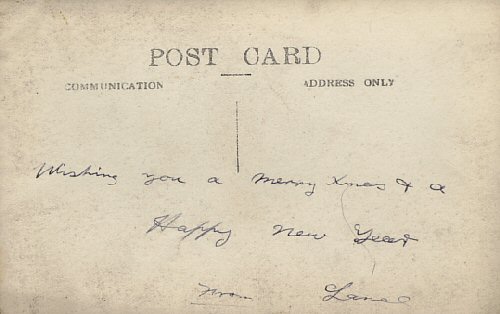 POST CARD
COMMUNICATION ADDRESS ONLY
Wishing you a merry Xmas & a
Happy New Year
From